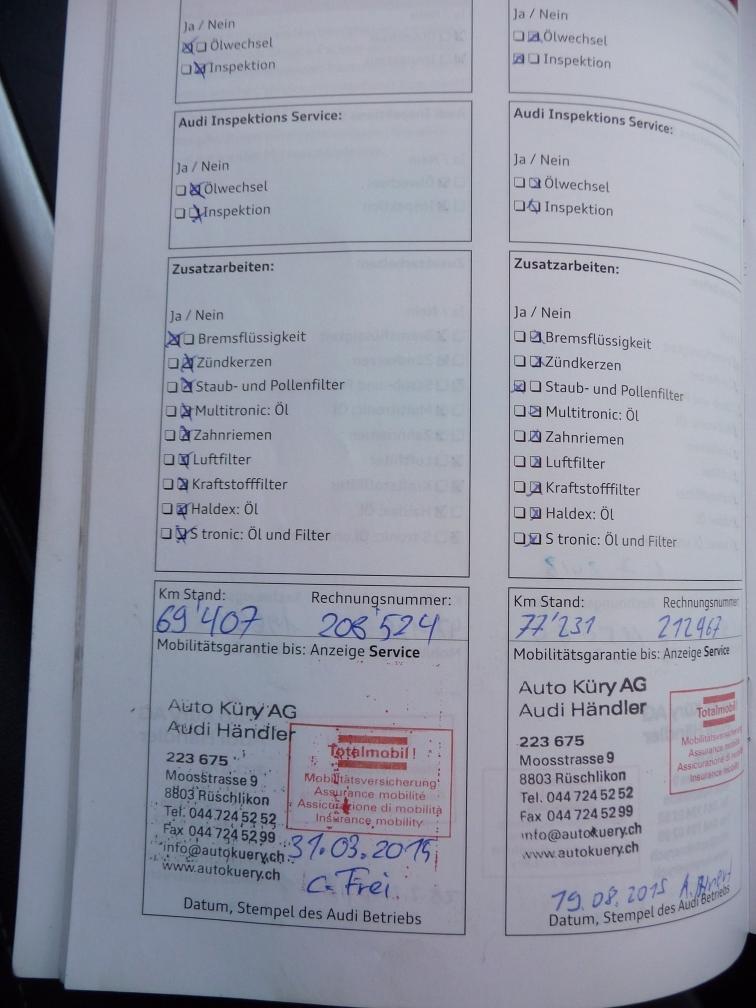 Ja / Nein
Ölwechsel
Inspektion
Audi Inspektions Service:
Ja / Nein
Ölwechsel
Inspektion
Zusatzarbeiten:
Ja / Nein
Bremsflüssigkeit
Zündkerzen
Staub- und Pollenfilter
Multitronic: Öl
Zahnriemen
Luftfilter
Kraftstofffilter
Haldex: Öl
S tronic: Öl und Filter
Km Stand: Rechnungsnummer:
69'407 208'524
Mobilitätsgarantie bis: Anzeige Service
Auto Küry AG
Audi Händler
223 675
Moosstrasse 9
8803 Rüschlikon
Tel. 044 724 52 52
Fax 044 724 52 99
info@autokuery.ch
www.autokuery.ch
Totalmobil!
Mobilitätsversicherung
Assurance mobilité
Assicurazione di mobilità
Insurance mobility
31.03.2015
C. Frei
Datum, Stempel des Audi Betriebs
Ja / Nein
Ölwechsel
Inspektion
Audi Inspektions Service:
Ja / Nein
Ölwechsel
Inspektion
Zusatzarbeiten:
Ja / Nein
Bremsflüssigkeit
Zündkerzen
Staub- und Pollenfilter
Multitronic: Öl
Zahnriemen
Luftfilter
Kraftstofffilter
Haldex: Öl
S tronic: Öl und Filter
Km Stand: Rechnungsnummer
77'231 212967
Mobilitätsgarantie bis: Anzeige Service
Auto Küry AG
Audi Händler
223 675
Moosstrasse 9
8803 Rüschlikon
Tel. 044 724 52 52
Fax 044 724 52 99
info@autokuery.ch
www.autokuery.ch
Totalmobil!
Mobilitätsvers
Assurance mob
Assicurazione di mob
Insurance mobil
19.08.2015 A.
Datum, Stempel des Audi Betriebs